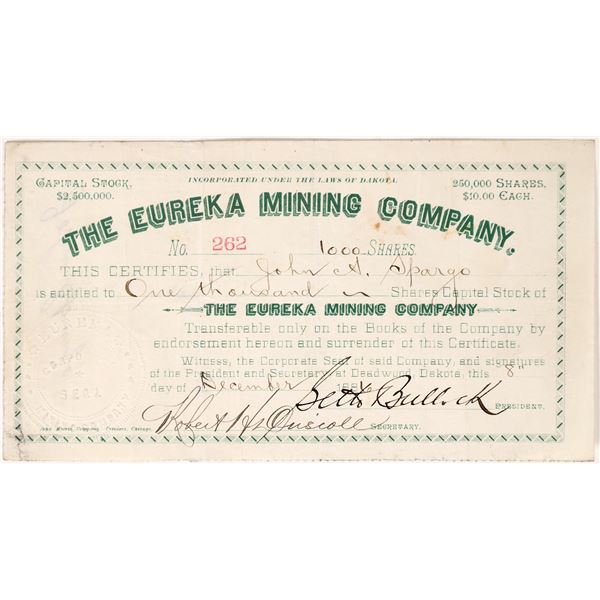 INCORPORATED UNDER THE LAWS OF DAKOTA.
CAPITAL STOCK, $2,500,000.
250,000 SHARES, $10.00 EACH.
THE EUREKA MINING COMPANY.
No. 262 1000 SHARES.
THIS CERTIFIES, that John A. Spargo
is entitled to One thousand Shares Capital Stock of
THE EUREKA MINING COMPANY
Transferable only on the Books of the Company by
endorsement hereon and surrender of this Certificate.
Witness, the Corporate Seal of said Company, and signatures
of the President and Secretary, at Deadwood, Dakota, this 8"
day of December 188
Seth Bullock
PRESIDENT.
Robert H. Driscoll
SECRETARY.
John Morris Company, Printers, Chicago.
SEAL